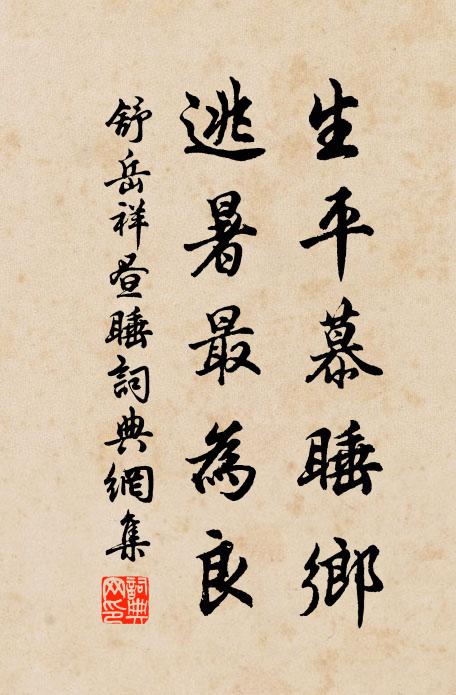 生平慕睡鄉
逃暑最為良
舒岳祥晝睡詞典網集
詞典网印